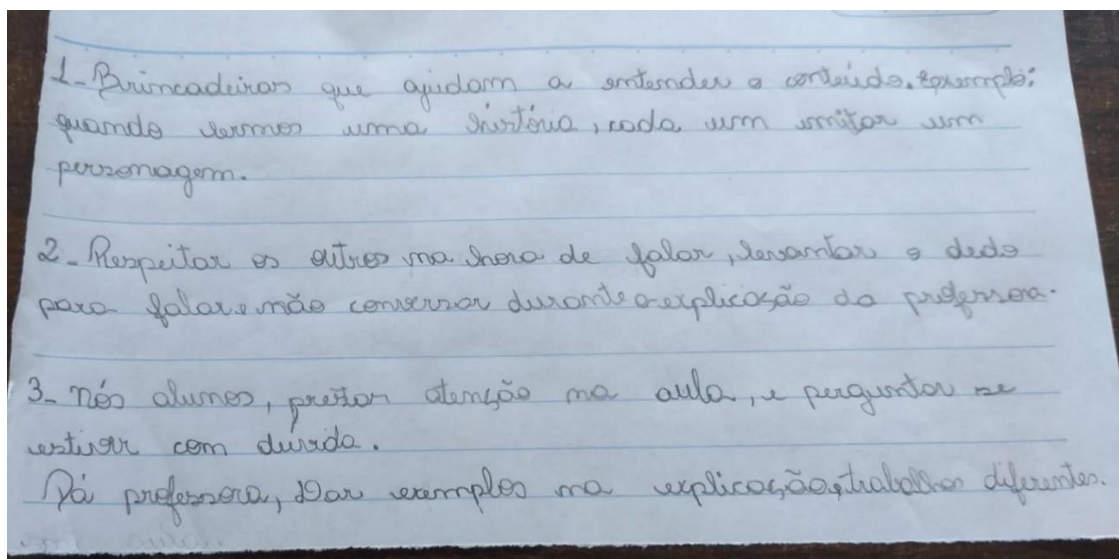 1- Brincadeiras que ajudam a entender o conteúdo. Exemplo:
quando lermos uma história, cada um imitar um
personagem.
2- Respeitar os outros na hora de falar, levantar o dedo
para falar e não conversar durante a explicação da professora.
3- nós alunos, prestar atenção na aula, e perguntar se
estiver com duvida.
Dá professora, Dar exemplos na explicação, trabalhos diferentes.